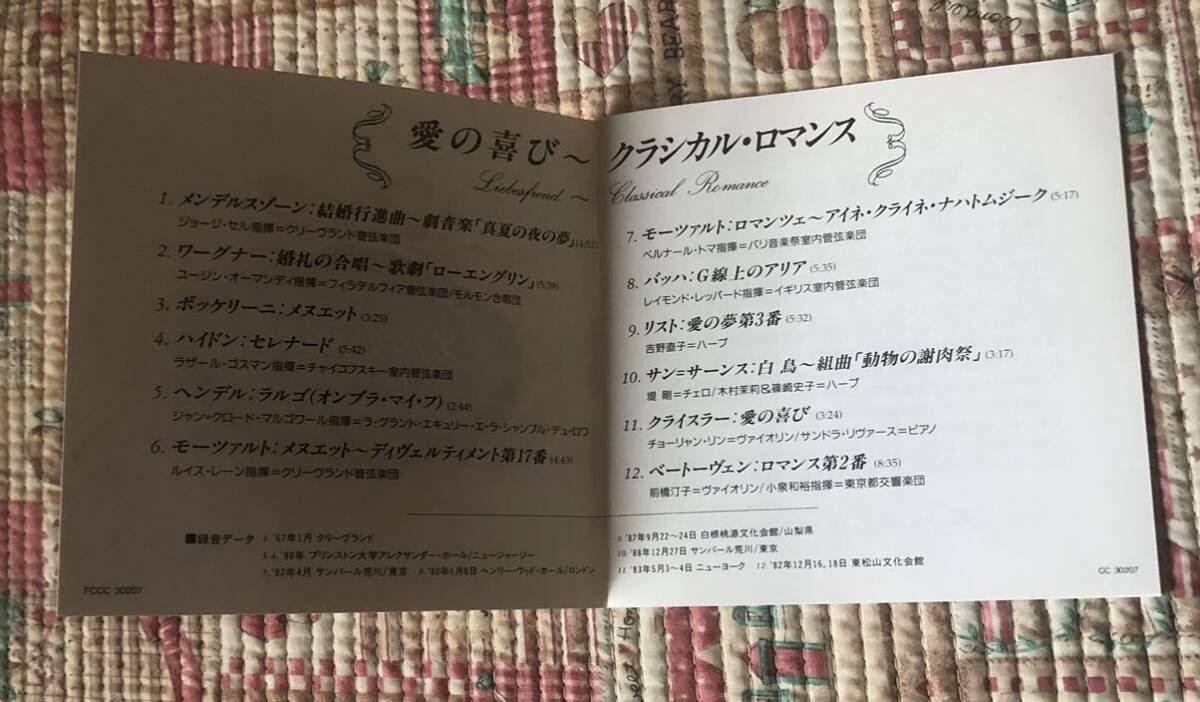 愛の喜び～ クラシカル・ロマンス
Liebesfreud ～ Classical Romance
1. メンデルスゾーン：結婚行進曲～劇音楽「真夏の夜の夢」(4:52)
ジョージ・セル指揮＝クリーヴランド管弦楽団
2. ワーグナー：婚礼の合唱～歌劇「ローエングリン」(5:39)
ユージン・オーマンディ指揮＝フィラデルフィア管弦楽団/モルモン合唱団
3. ボッケリーニ：メヌエット (3:25)
4. ハイドン：セレナード (5:42)
ラザール・ゴスマン指揮＝チャイコフスキー室内管弦楽団
5. ヘンデル：ラルゴ(オンブラ・マイ・フ) (2:44)
ジャン＝クロード・マルゴワール指揮＝ラ・グランド・エキュリー・エ・ラ・シャンブル・デュ・ロワ
6. モーツァルト：メヌエット～ディヴェルティメント第17番 (4:43)
ルイス・レーン指揮＝クリーヴランド管弦楽団
■録音データ 1. '67年1月 クリーヴランド
3.4. '88年 プリンストン大学アレクサンダー・ホール/ニュージャージー
7. '82年4月 サンパール荒川/東京 8. '80年1月8日 ヘンリー・ウッド・ホール/ロンドン
FCCC 30207
7. モーツァルト：ロマンツェ～アイネ・クライネ・ナハトムジーク (5:17)
ベルナール・トマ指揮＝パリ音楽祭室内管弦楽団
8. バッハ：G線上のアリア (5:35)
レイモンド・レッパード指揮＝イギリス室内管弦楽団
9. リスト：愛の夢第3番 (5:32)
吉野直子＝ハープ
10. サン＝サーンス：白鳥～組曲「動物の謝肉祭」(3:17)
堤 剛＝チェロ/木村茉莉&篠崎史子＝ハープ
11. クライスラー：愛の喜び (3:24)
チョーリャン・リン＝ヴァイオリン/サンドラ・リヴァース＝ピアノ
12. ベートーヴェン：ロマンス第2番 (8:35)
前橋汀子＝ヴァイオリン/小泉和裕指揮＝東京都交響楽団
9. '87年9月22～24日 白根桃源文化会館/山梨県
10. '88年12月27日 サンパール荒川/東京
11. '83年5月3～4日 ニューヨーク 12. '82年12月16,18日 東松山文化会館
CC 30207